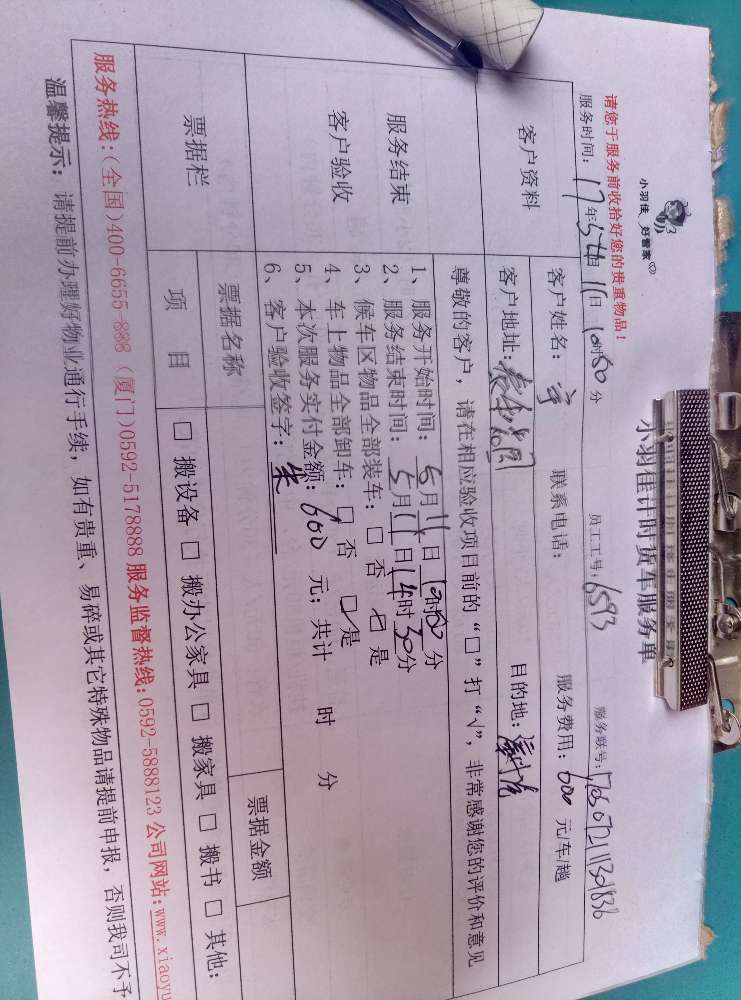 小羽佳 好管家
小羽佳计时货车服务单
请您于服务前收拾好您的贵重物品!
服务时间: 17年5月11日10时80分 员工工号: 6593 服务联号:
客户资料
客户姓名: 联系电话: 服务费用: 600 元/车/趟
客户地址: 目的地:
服务结束
客户验收
尊敬的客户，请在相应验收项目前的“□”打“√”，非常感谢您的评价和意见
1、服务开始时间: 5月11日10时80分
2、服务结束时间: 5月11日14时30分
3、候车区物品全部装车: □ 否 ☑ 是
4、车上物品全部卸车: □ 否 ☑ 是
5、本次服务实付金额: 600 元; 共计 时 分
6、客户验收签字: 朱
票据栏
票据名称 票据金额
项 目 □ 搬设备 □ 搬办公家具 □ 搬家具 □ 搬书 □ 其他:
服务热线:(全国)400-6655-888 (厦门)0592-5178888 服务监督热线:0592-5888123 公司网站:www.xiaoyu
温馨提示: 请提前办理好物业通行手续, 如有贵重、易碎或其它特殊物品请提前申报, 否则我司不予